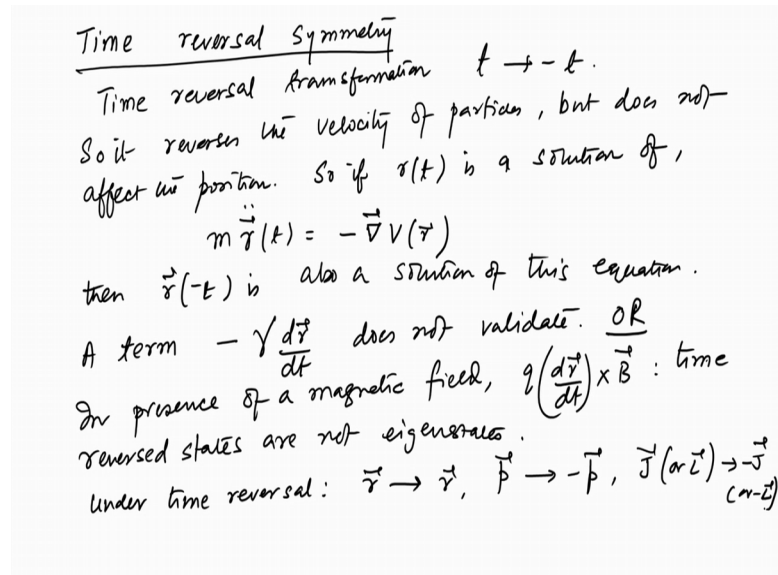 Time reversal Symmetry
Time reversal transformation t → -t.
So it reverses the velocity of particles, but does not
affect the position. So if r(t) is a solution of,
m r̈⃗(t) = - ∇⃗ V(r⃗)
then r⃗(-t) is also a solution of this equation.
A term - γ dr⃗/dt does not validate. OR
In presence of a magnetic field, q(dr⃗/dt) × B⃗ : time
reversed states are not eigenstates.
Under time reversal: r⃗ → r⃗, p⃗ → -p⃗, J⃗ (or L⃗) → -J⃗
(or -L⃗)